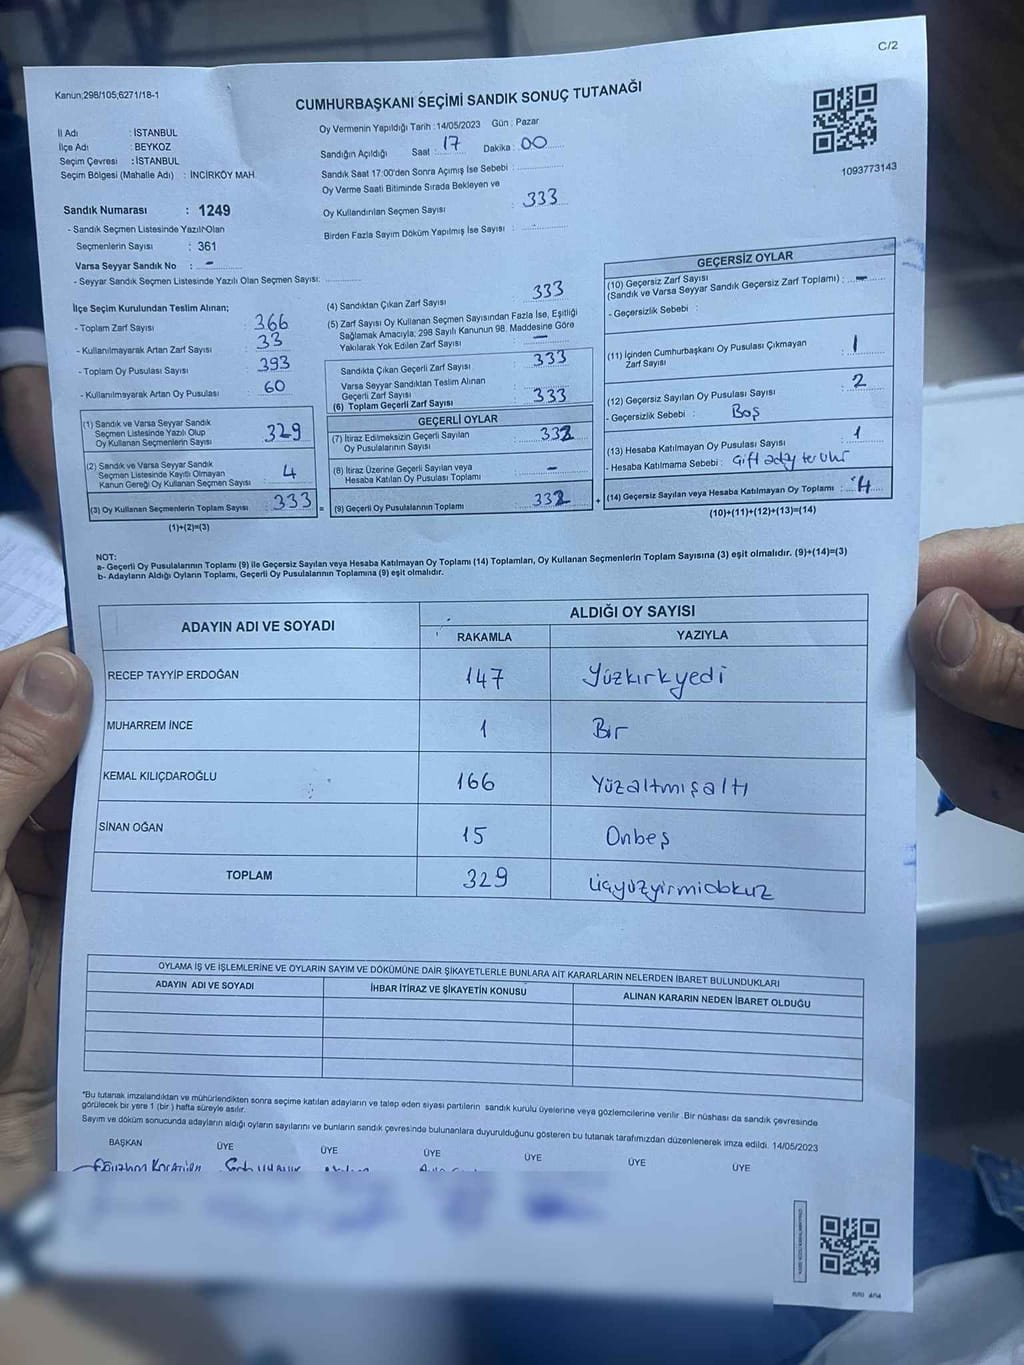 C/2
Kanun;298/105;6271/18-1
CUMHURBAŞKANI SEÇİMİ SANDIK SONUÇ TUTANAĞI
İl Adı : İSTANBUL
İlçe Adı : BEYKOZ
Seçim Çevresi : İSTANBUL
Seçim Bölgesi (Mahalle Adı) : İNCİRKÖY MAH.
Oy Vermenin Yapıldığı Tarih : 14/05/2023 Gün : Pazar
Sandığın Açıldığı Saat : 17 Dakika : 00
Sandık Saat 17:00'den Sonra Açımış İse Sebebi :
Oy Verme Saati Bitiminde Sırada Bekleyen ve
Oy Kullandırılan Seçmen Sayısı : 333
Birden Fazla Sayım Döküm Yapılmış İse Sayısı : -
1093773143
Sandık Numarası : 1249
- Sandık Seçmen Listesinde Yazılı Olan
Seçmenlerin Sayısı : 361
Varsa Seyyar Sandık No : -
- Seyyar Sandık Seçmen Listesinde Yazılı Olan Seçmen Sayısı:
İlçe Seçim Kurulundan Teslim Alınan;
- Toplam Zarf Sayısı : 366
- Kullanılmayarak Artan Zarf Sayısı : 33
- Toplam Oy Pusulası Sayısı : 393
- Kullanılmayarak Artan Oy Pusulası : 60
(1) Sandık ve Varsa Seyyar Sandık
Seçmen Listesinde Yazılı Olup
Oy Kullanan Seçmenlerin Sayısı : 329
(2) Sandık ve Varsa Seyyar Sandık
Seçmen Listesinde Kayıtlı Olmayan
Kanun Gereği Oy Kullanan Seçmen Sayısı : 4
(3) Oy Kullanan Seçmenlerin Toplam Sayısı : 333
(1)+(2)=(3)
(4) Sandıktan Çıkan Zarf Sayısı : 333
(5) Zarf Sayısı Oy Kullanan Seçmen Sayısından Fazla İse, Eşitliği
Sağlamak Amacıyla; 298 Sayılı Kanunun 98. Maddesine Göre
Yakılarak Yok Edilen Zarf Sayısı : -
Sandıkta Çıkan Geçerli Zarf Sayısı : 333
Varsa Seyyar Sandıktan Teslim Alınan
Geçerli Zarf Sayısı :
(6) Toplam Geçerli Zarf Sayısı : 333
GEÇERLİ OYLAR
(7) İtiraz Edilmeksizin Geçerli Sayılan
Oy Pusulalarının Sayısı : 332
(8) İtiraz Üzerine Geçerli Sayılan veya
Hesaba Katılan Oy Pusulası Toplamı : -
(9) Geçerli Oy Pusulalarının Toplamı : 332
GEÇERSİZ OYLAR
(10) Geçersiz Zarf Sayısı
(Sandık ve Varsa Seyyar Sandık Geçersiz Zarf Toplamı) : -
- Geçersizlik Sebebi :
(11) İçinden Cumhurbaşkanı Oy Pusulası Çıkmayan
Zarf Sayısı : 1
(12) Geçersiz Sayılan Oy Pusulası Sayısı : 2
- Geçersizlik Sebebi : Boş
(13) Hesaba Katılmayan Oy Pusulası Sayısı : 1
- Hesaba Katılmama Sebebi : Çift aday tercihi
(14) Geçersiz Sayılan veya Hesaba Katılmayan Oy Toplamı : 4
(10)+(11)+(12)+(13)=(14)
NOT:
a- Geçerli Oy Pusulalarının Toplamı (9) ile Geçersiz Sayılan veya Hesaba Katılmayan Oy Toplamı (14) Toplamları, Oy Kullanan Seçmenlerin Toplam Sayısına (3) eşit olmalıdır. (9)+(14)=(3)
b- Adayların Aldığı Oyların Toplamı, Geçerli Oy Pusulalarının Toplamına (9) eşit olmalıdır.
ADAYIN ADI VE SOYADI
ALDIĞI OY SAYISI
RAKAMLA YAZIYLA
RECEP TAYYİP ERDOĞAN 147 Yüzkırkyedi
MUHARREM İNCE 1 Bir
KEMAL KILIÇDAROĞLU 166 Yüzaltmışaltı
SİNAN OĞAN 15 Onbeş
TOPLAM 329 üçyüzyirmidokuz
OYLAMA İŞ VE İŞLEMLERİNE VE OYLARIN SAYIM VE DÖKÜMÜNE DAİR ŞİKAYETLERLE BUNLARA AİT KARARLARIN NELERDEN İBARET BULUNDUKLARI
ADAYIN ADI VE SOYADI İHBAR İTİRAZ VE ŞİKAYETİN KONUSU ALINAN KARARIN NEDEN İBARET OLDUĞU
*Bu tutanak imzalandıktan ve mühürlendikten sonra seçime katılan adayların ve talep eden siyasi partilerin sandık kurulu üyelerine veya gözlemcilerine verilir. Bir nüshası da sandık çevresinde
görülecek bir yere 1 (bir ) hafta süreyle asılır.
Sayım ve döküm sonucunda adayların aldığı oyların sayılarını ve bunların sandık çevresinde bulunanlara duyurulduğunu gösteren bu tutanak tarafımızdan düzenlenerek imza edildi. 14/05/2023
BAŞKAN ÜYE ÜYE ÜYE ÜYE ÜYE ÜYE